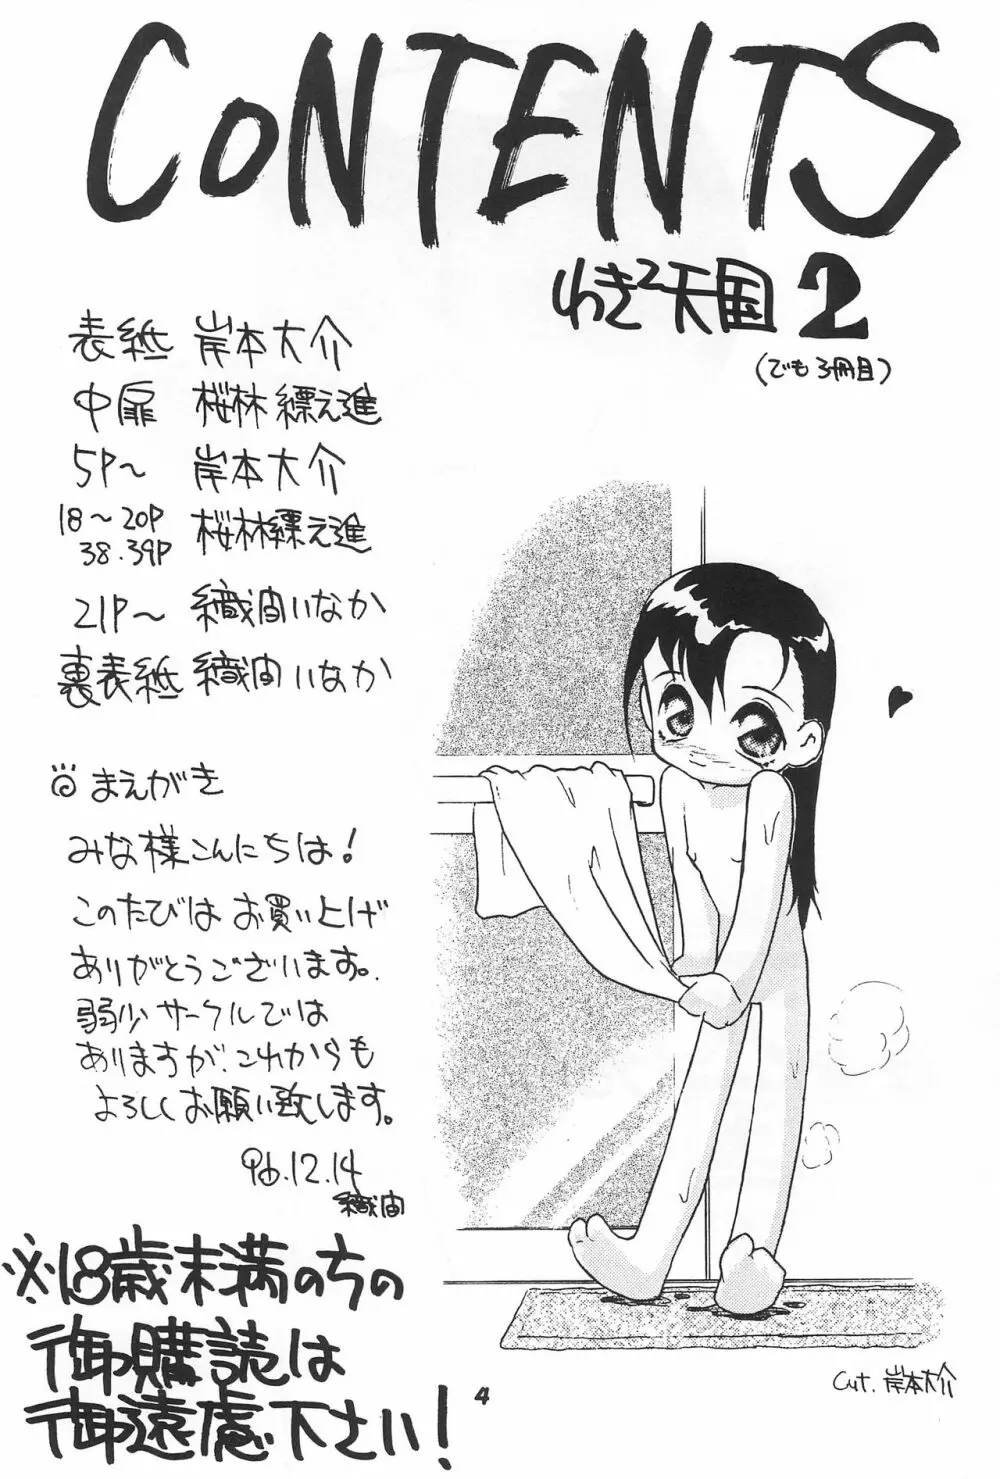 CONTENTS
わき²天国 2
(でも3冊目)
表紙 岸本大介
中扉 桜林縹え進
5P〜 岸本大介
18〜20P
38.39P 桜林縹え進
21P〜 織田いなか
裏表紙 織田いなか
まえがき
みな様こんにちは!
このたびは お買い上げ
ありがとうございます。
弱少サークルでは
ありますが、これからも
よろしくお願い致します。
96.12.14
※18歳末満のちの
御購読は
御遠慮下さい!
4
Cut. 岸本大介